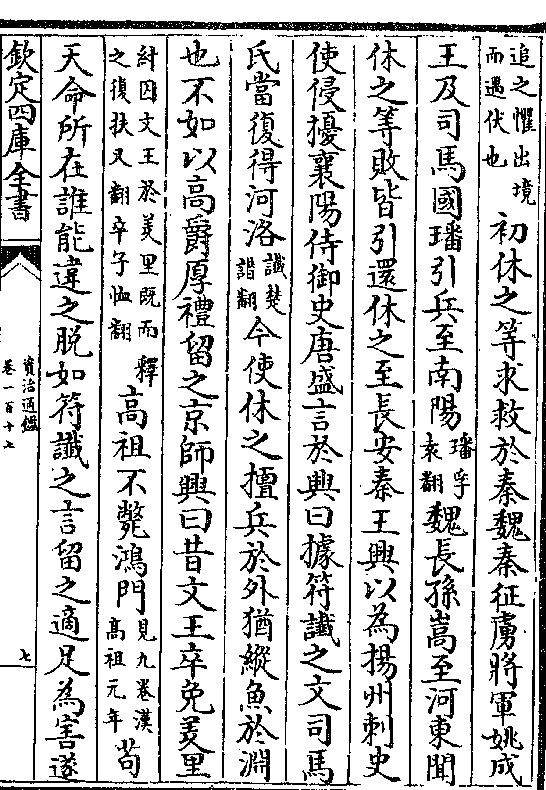 追之懼出境
而遇伏也
初休之等求救於秦魏秦征虜將軍姚成
王及司馬國璠引兵至南陽
璠孚
袁翻
魏長孫嵩至河東聞
休之等敗皆引還休之至長安秦王興以為揚州刺史
使侵擾襄陽侍御史唐盛言於興曰據符讖之文司馬
氏當復得河洛
讖楚
譖翻
今使休之擅兵於外猶縱魚於淵
也不如以高爵厚禮留之京師興曰昔文王卒免羑里
紂囚文王於羑里既而釋
之復扶又翻卒子恤翻
高祖不斃鴻門
見九卷漢
高祖元年
苟
天命所在誰能違之脫如符讖之言留之適足為害遂
欽定四庫全書
資治通鑑
卷一百十七
七